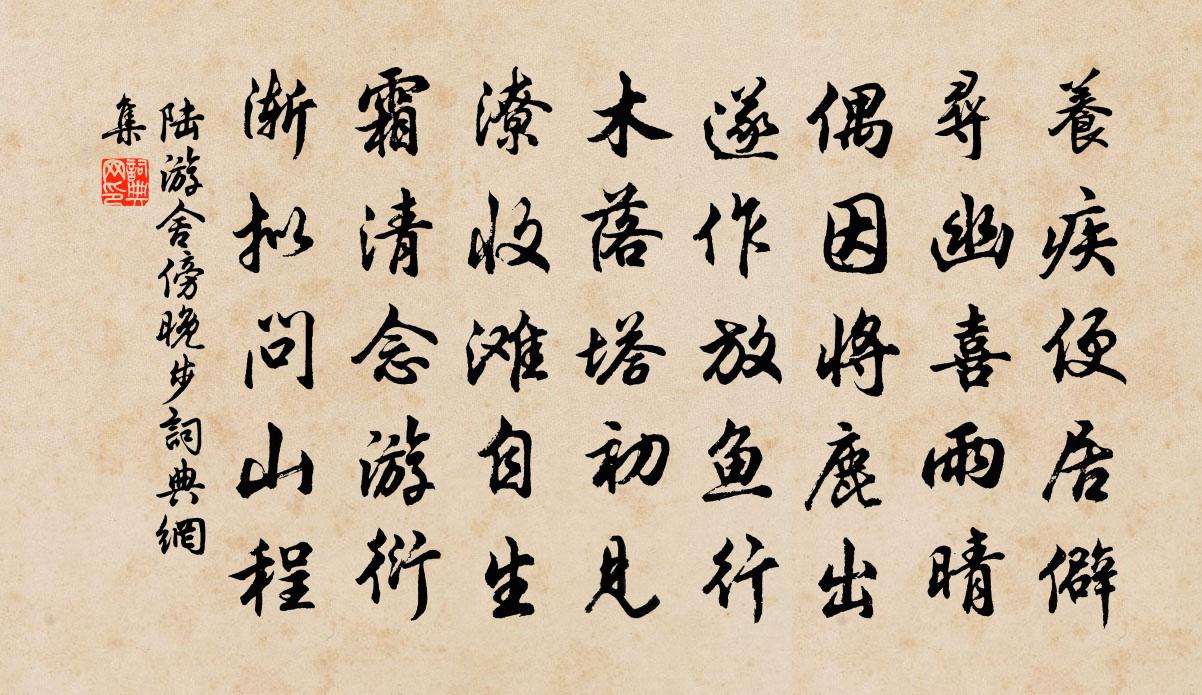 養疾便居僻
尋幽喜雨晴
偶因将鹿出
遂作放鱼行
木落塔初見
潦收滩自生
霜清念游衍
渐拟问山程
陆游舍傍晚步詞典網
集
詞典网印